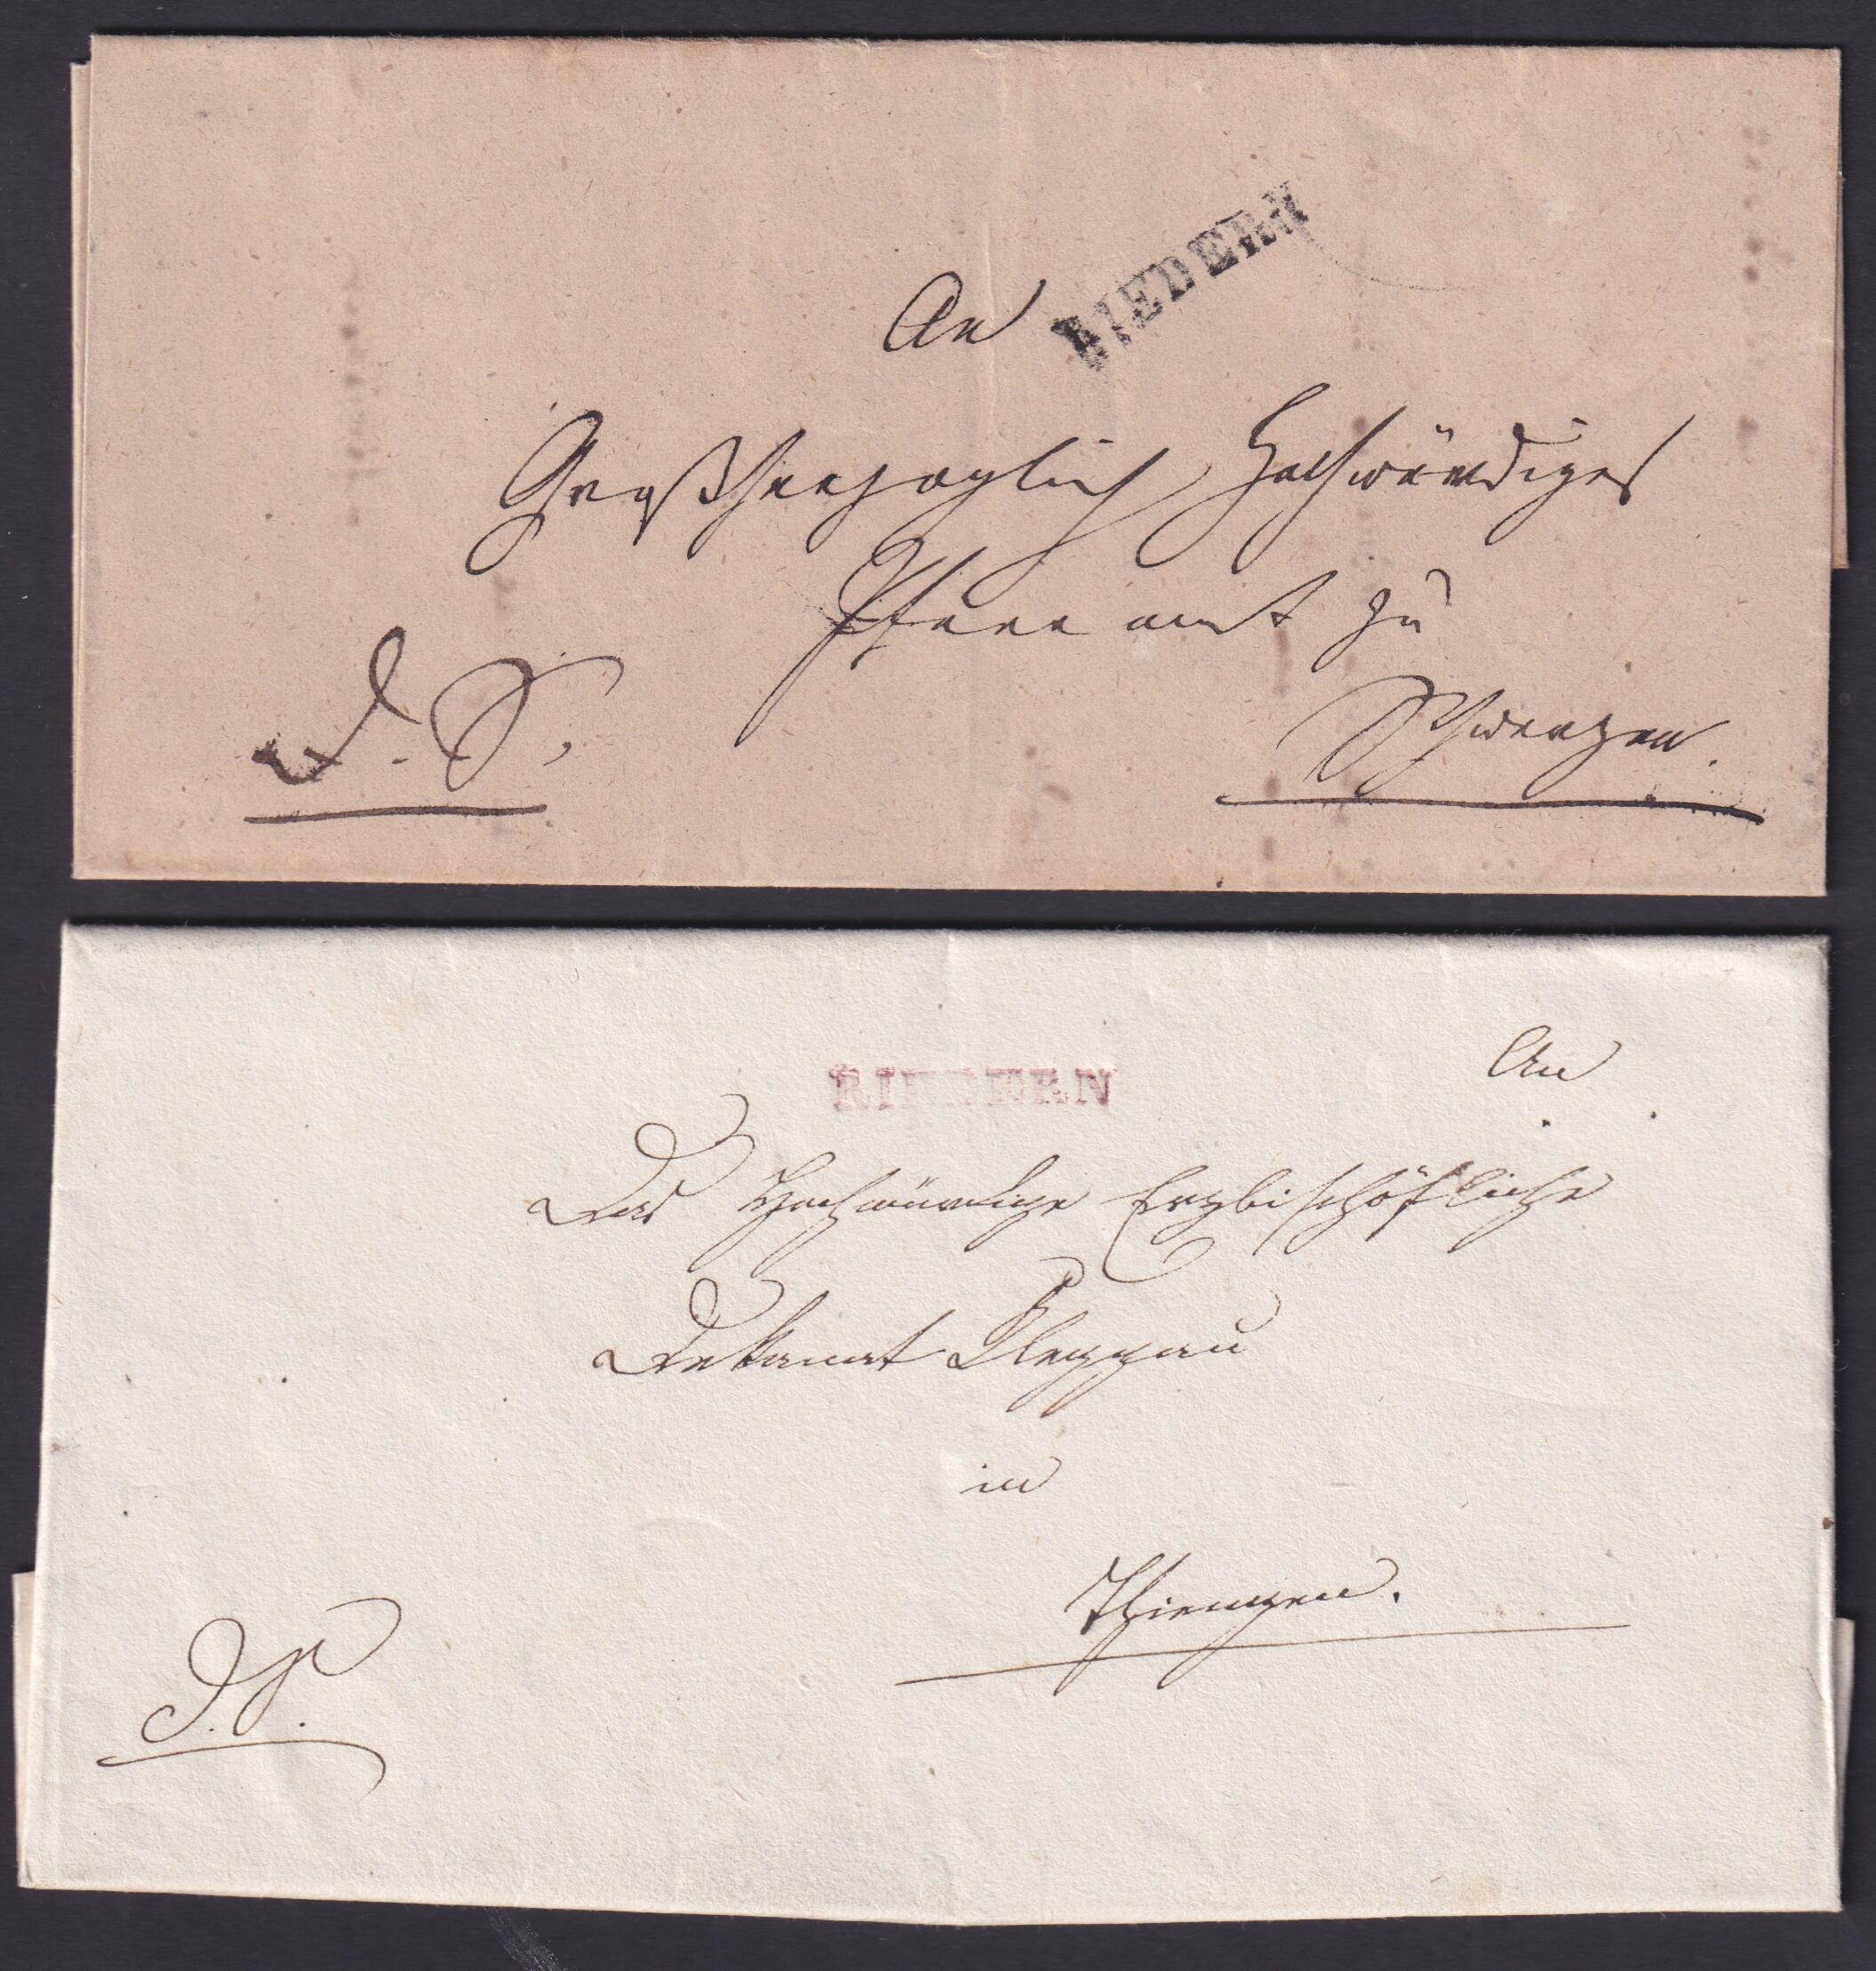 RIEDERN
An
Großherzoglich Hochwürdiges
Pfarramt zu
D. S.
Schwerzen.
RIEDERN
An
Das Hochwürdige Erzbischöfliche
Dekanat Kleggau
in
Thiengen.
D. S.